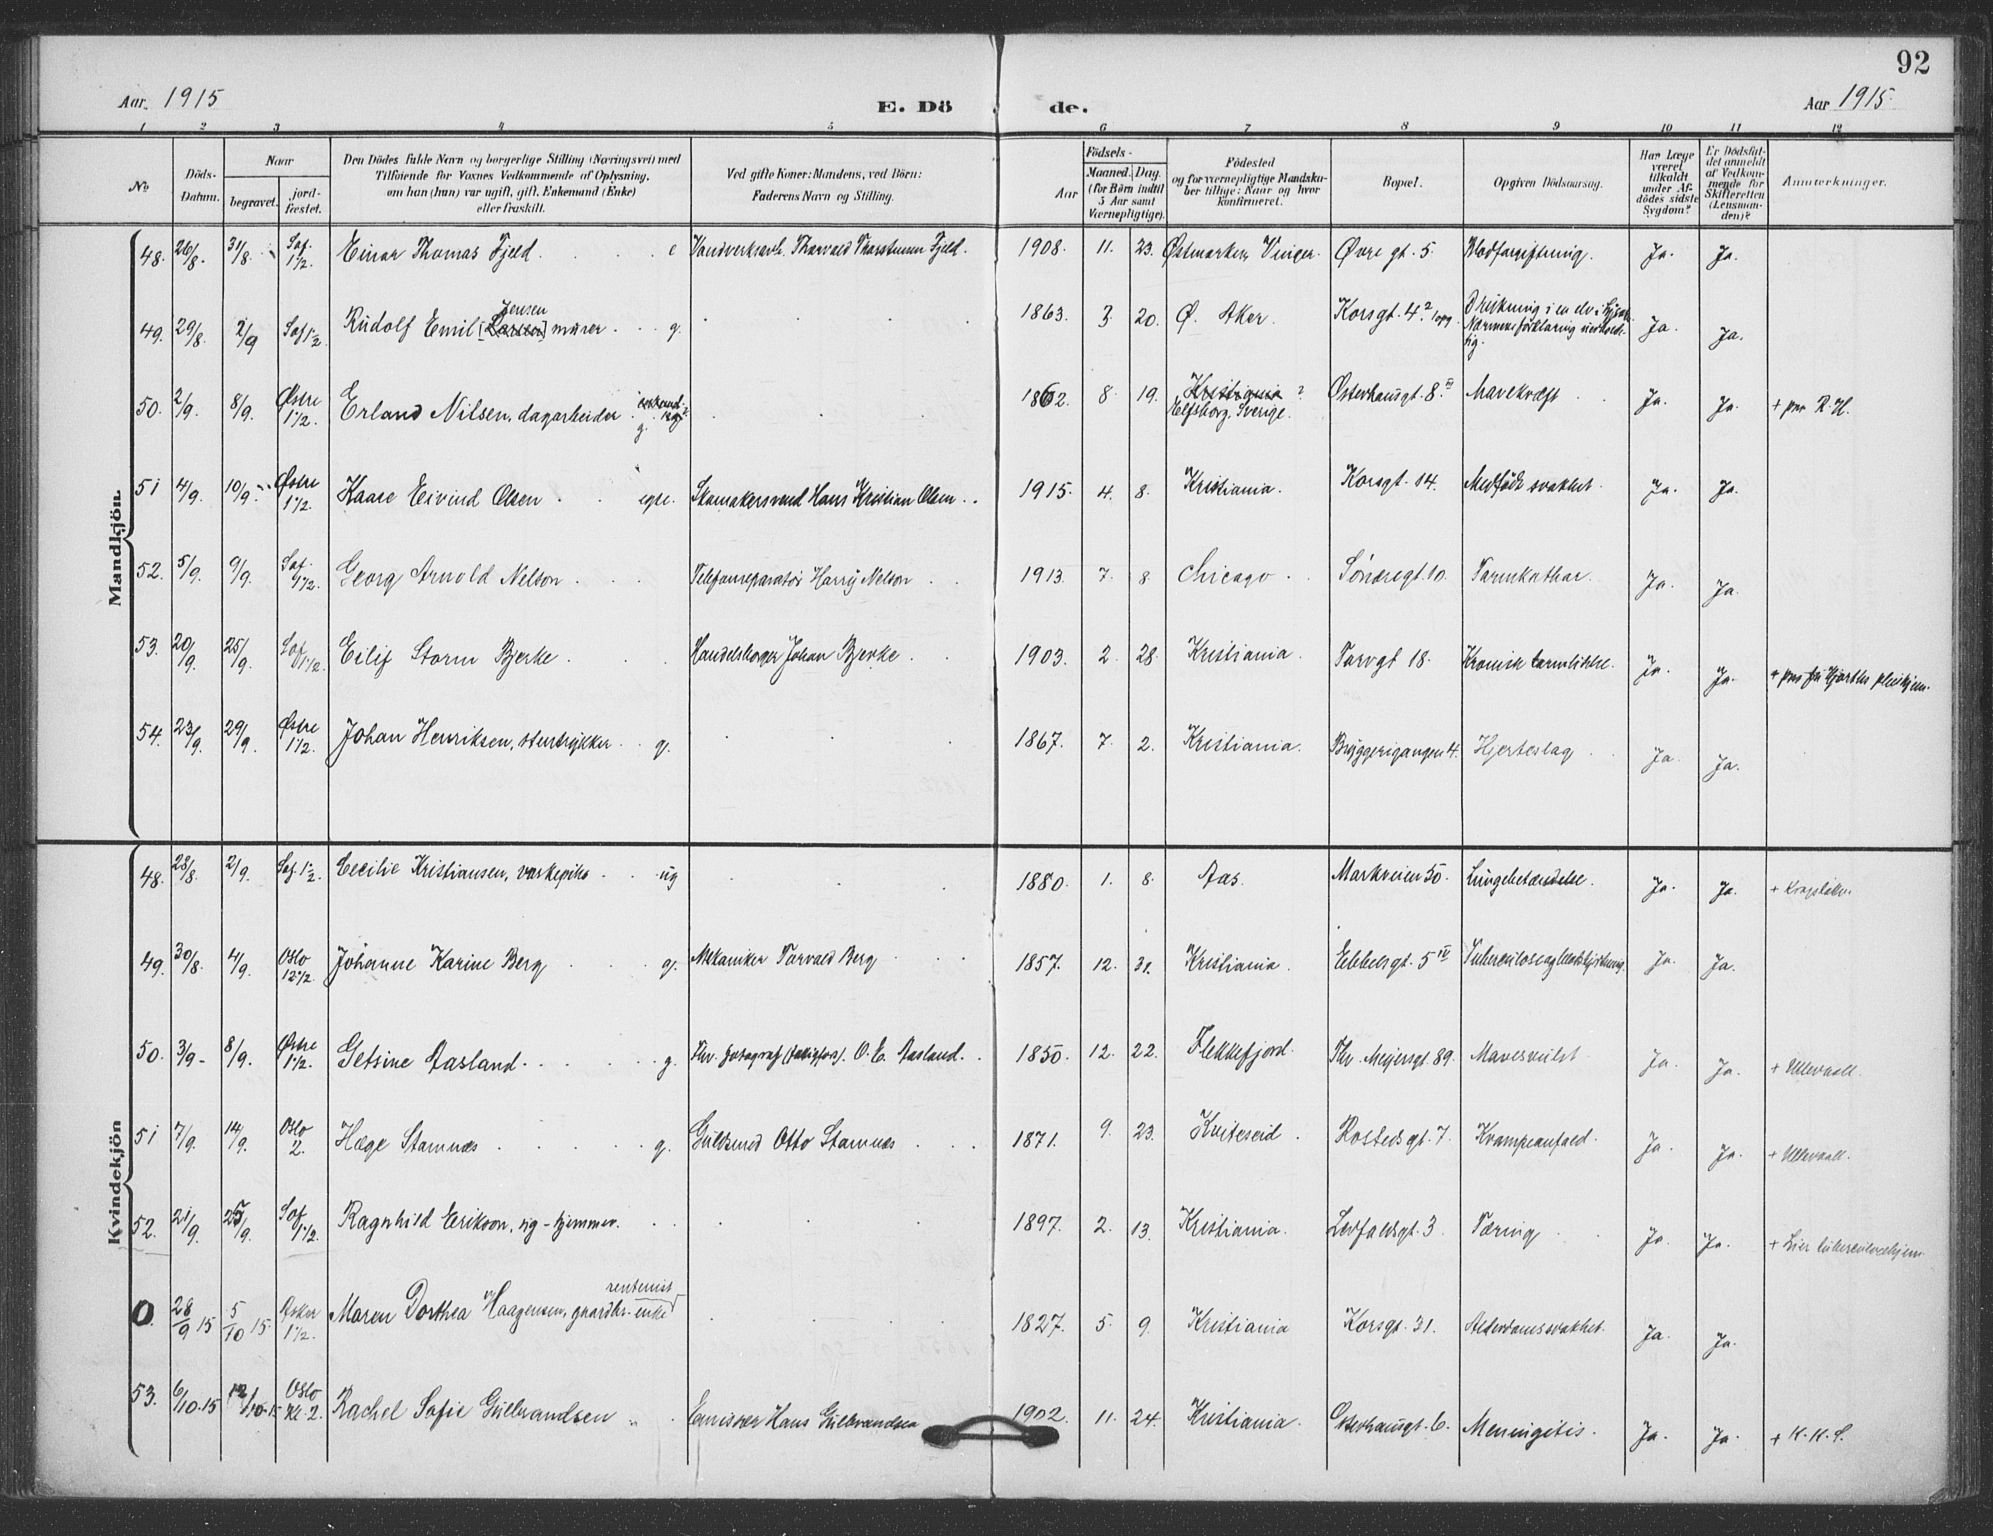 92
Aar 1915 E. Dö de. Aar 1915.
1 2 3 4 5 6 7 8 9 10 11 12
No Döds-Datum. Naar begravet. jord-fæstet. Den Dödes fulde Navn og borgerlige Stilling (Næringsvei) med Tilföiende for Voxnes Vedkommende af Oplysning, om han (hun) var ugift, gift, Enkemand (Enke) eller fraskilt. Ved gifte Koner: Mandens, ved Börn: Faderens Navn og Stilling. Födsels- Aar Maaned. Dag. (for Börn indtil 5 Aar samt Værnepligtige). Födested og for værnepligtige Mandskaber tillige: Naar og hvor konfirmeret. Bopæl. Opgiven Dödsaarsag. Har Læge været tilkaldt under Afdödes sidste Sygdom? Er Dödsfaldet anmeldt af Vedkommende for Skifteretten (Lensmanden)? Anmerkninger.
Mandkjön.
48. 26/8. 31/8. Sof. 1 1/2. Einar Thomas Fjeld. e Thorvald Fjeld. 1908. 11. 23. Østmarken, Vinger. Øvre gt. 5. Blodforgiftning. Ja. Ja.
49. 29/8. 2/9 Sof 1 1/2 Rudolf Emil [Larsen] Jensen murer g. 1863. 3 20. Ø. Aker. Korsgt. 4. Drukning i en elv i Nærmere forklaring Ja. Ja.
50. 2/9. 8/9. Østre 1 1/2. Erland Nilsen, dagarbeider g. 1862. 8. 19. Kristiania? Elfsborg, Sverige. Østerhausgt. 8 III Mavekræft Ja. Ja. + paa R. H.
51 4/9. 10/9. Østre 1 1/2. Kaare Eivind Olsen Skomakersvend Hans Kristian Olsen 1915. 4. 8. Kristiania. Korsgt. 14. Medfødt svakhet. Ja. Ja.
52. 5/9. 9/9. Sof. 1 1/2. Georg Arnold Nelson Telefonreparatør Harry Nelson 1913. 7. 8 Chicago Søndregt. 10. Tarmkathar. Ja. Ja.
53. 20/9. 25/9. Sof 1 1/2. Eilif Storm Bjerke. Handelsborger Johan Bjerke 1903. 2. 28. Kristiania. Torvgt 18. Kronisk Ja. Ja. + paa fru Hjorths pleiehjem.
54. 23/9. 29/9. Østre 1 1/2. Johan Henriksen, stentrykker g. 1867. 7. 2. Kristiania. Bryggerigangen 4. Hjerteslag Ja. Ja.
Kvindekjön
48. 28/8. 2/9. Sof 1 1/2. Cecilie Kristiansen, vaskepike ug 1880. 1. 8. Aas. Markveien 50. Lungebetændelse. Ja. Ja. + Krogstøtten
49. 30/8. 4/9. Oslo 12 1/2. Johanne Karine Berg g. Mekaniker Torvald Berg 1857. 12. 31. Kristiania. Ebbelsgt. 5 IV Ja. Ja.
50. 3/9 - 8/9. Østre 1 1/2. Getsine Aasland. g. Fhv. fotograf O. E. Aasland. 1850. 12. 22. Flekkefjord. Thv. Meyersgt 89. Mavesvulst Ja. Ja. + Ullevaall.
51 7/9. 14/9. Oslo 2. Hæge Stamnæs g. Guldsmed Otto Stamnæs 1871. 9. 23. Kviteseid. Rostedsgt. 7. Krampeanfald. Ja. Ja. + Ullevaall.
52. 21/9. 25/9. Sof 1 1/2. Ragnhild Erikson, ug - hjemmev. 1897. 2. 13. Kristiania. Løvfaldsgt. 3. Tæring Ja. Ja. + Lier tuberculosehjem
0. 28/9 15 5/10 15. Asker 1 1/2. Maren Dorthea Haagensen, gaardbr. enke rentenist 1827. 5. 9. Kristiania Korsgt. 31. Alderdomssvakhet. Ja. Ja.
53. 6/10. 15 12/10-15 Oslo Kl. 2. Rachel Sofie Gulbrandsen Emissær Hans Gulbrandsen 1902. 11. 24. Kristiania. Osterhausgt. 6. Meningitis. Ja. Ja. + K. K. S.